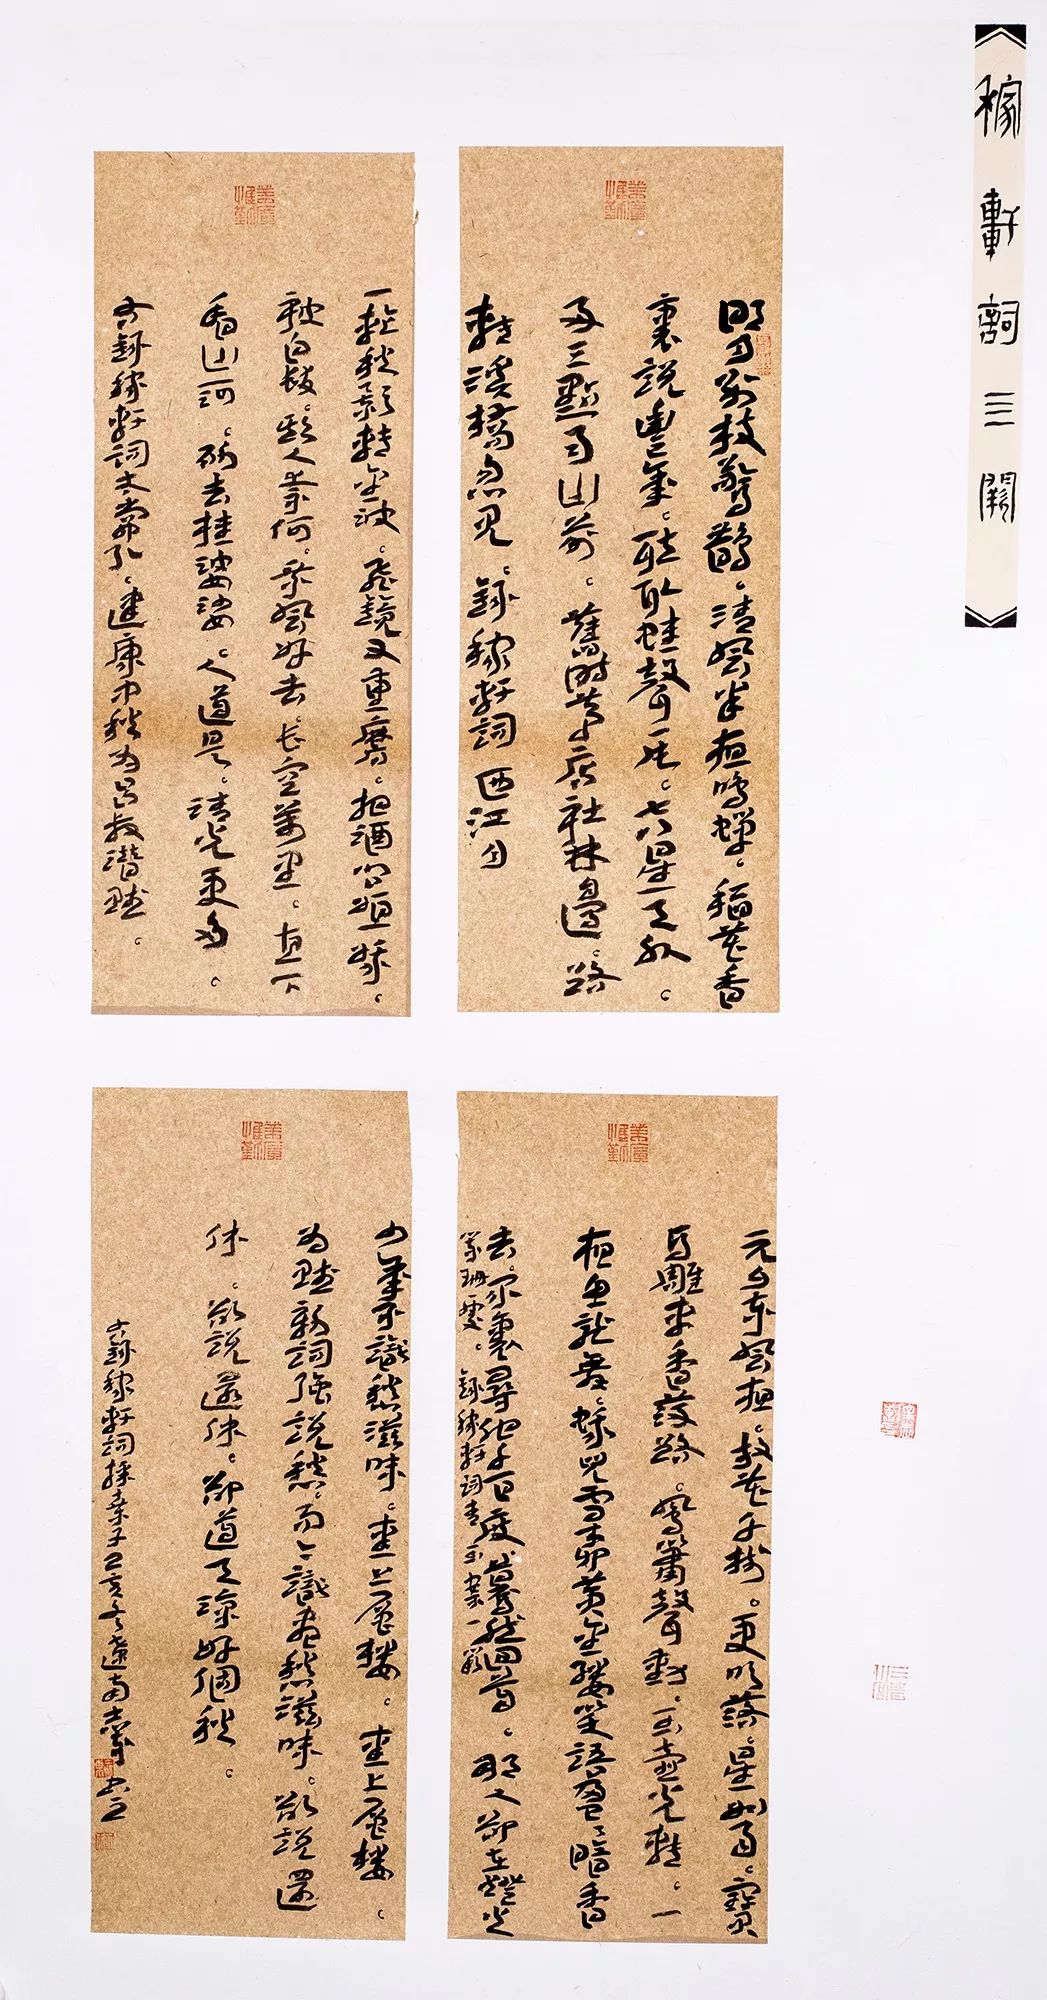 稼軒詞三闋
明月別枝驚鵲。清風半夜鳴蟬。稻花香
裏說豐年。聽取蛙聲一片。七八星天外。
兩三點雨山前。舊時茅店社林邊。路
轉溪橋忽見。錄稼軒詞西江月
一輪秋影轉金波。飛鏡又重磨。把酒問姮娥。
被白髮。欺人奈何。乘風好去。長空萬里。直下
看山河。斫去桂婆娑。人道是。清光更多。
右錄稼軒詞太常引。建康中秋為呂叔潛賦。
元夕東風夜。放花千樹。更吹落。星如雨。寶
馬雕車香滿路。鳳簫聲動。玉壺光轉。一
夜魚龍舞。蛾兒雪柳黃金縷笑語盈盈暗香
去。眾裏尋他千百度。驀然回首。那人卻在燈火
闌珊處。錄稼軒詞青玉案一闋
少年不識愁滋味。愛上層樓。愛上層樓。
為賦新詞強說愁。而今識盡愁滋味。欲說還
休。欲說還休。卻道天涼好個秋。
右錄稼軒詞採桑子己亥冬遼南
業廣惟勤
業廣惟勤
業廣惟勤
業廣惟勤